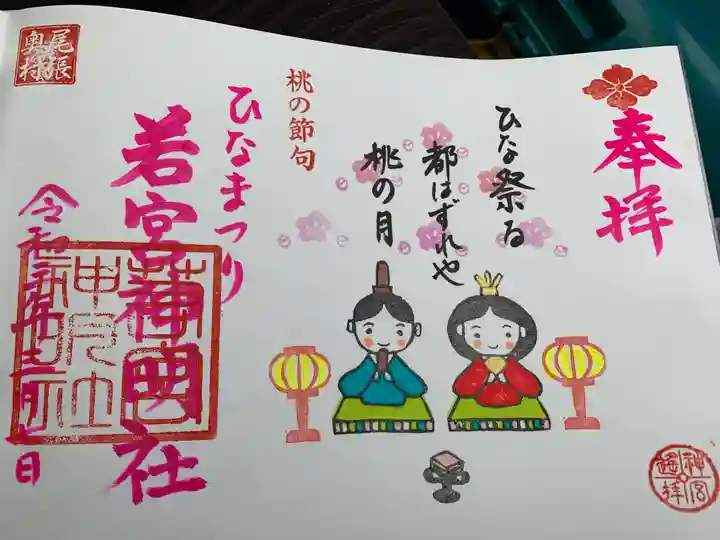 奉拝
ひな祭る
都はずれや
桃の月
桃の節句
ひなまつり
若宮神明社
令和三年 月 日
尾張
奥村
若宮
神明社
神宮
遥拝